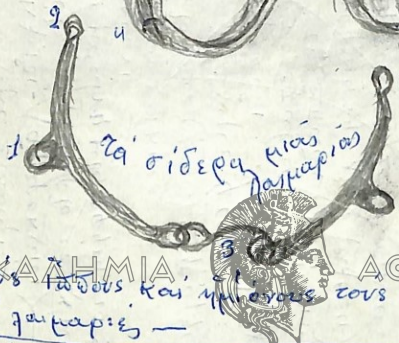 2
4
1
τά σίδερα μιάς
λαιμαριάς
3
ΚΑΔΗΜΙΑ ΑΘ
ἵππους καί ἡμιόνους τούς
λαιμαριές —